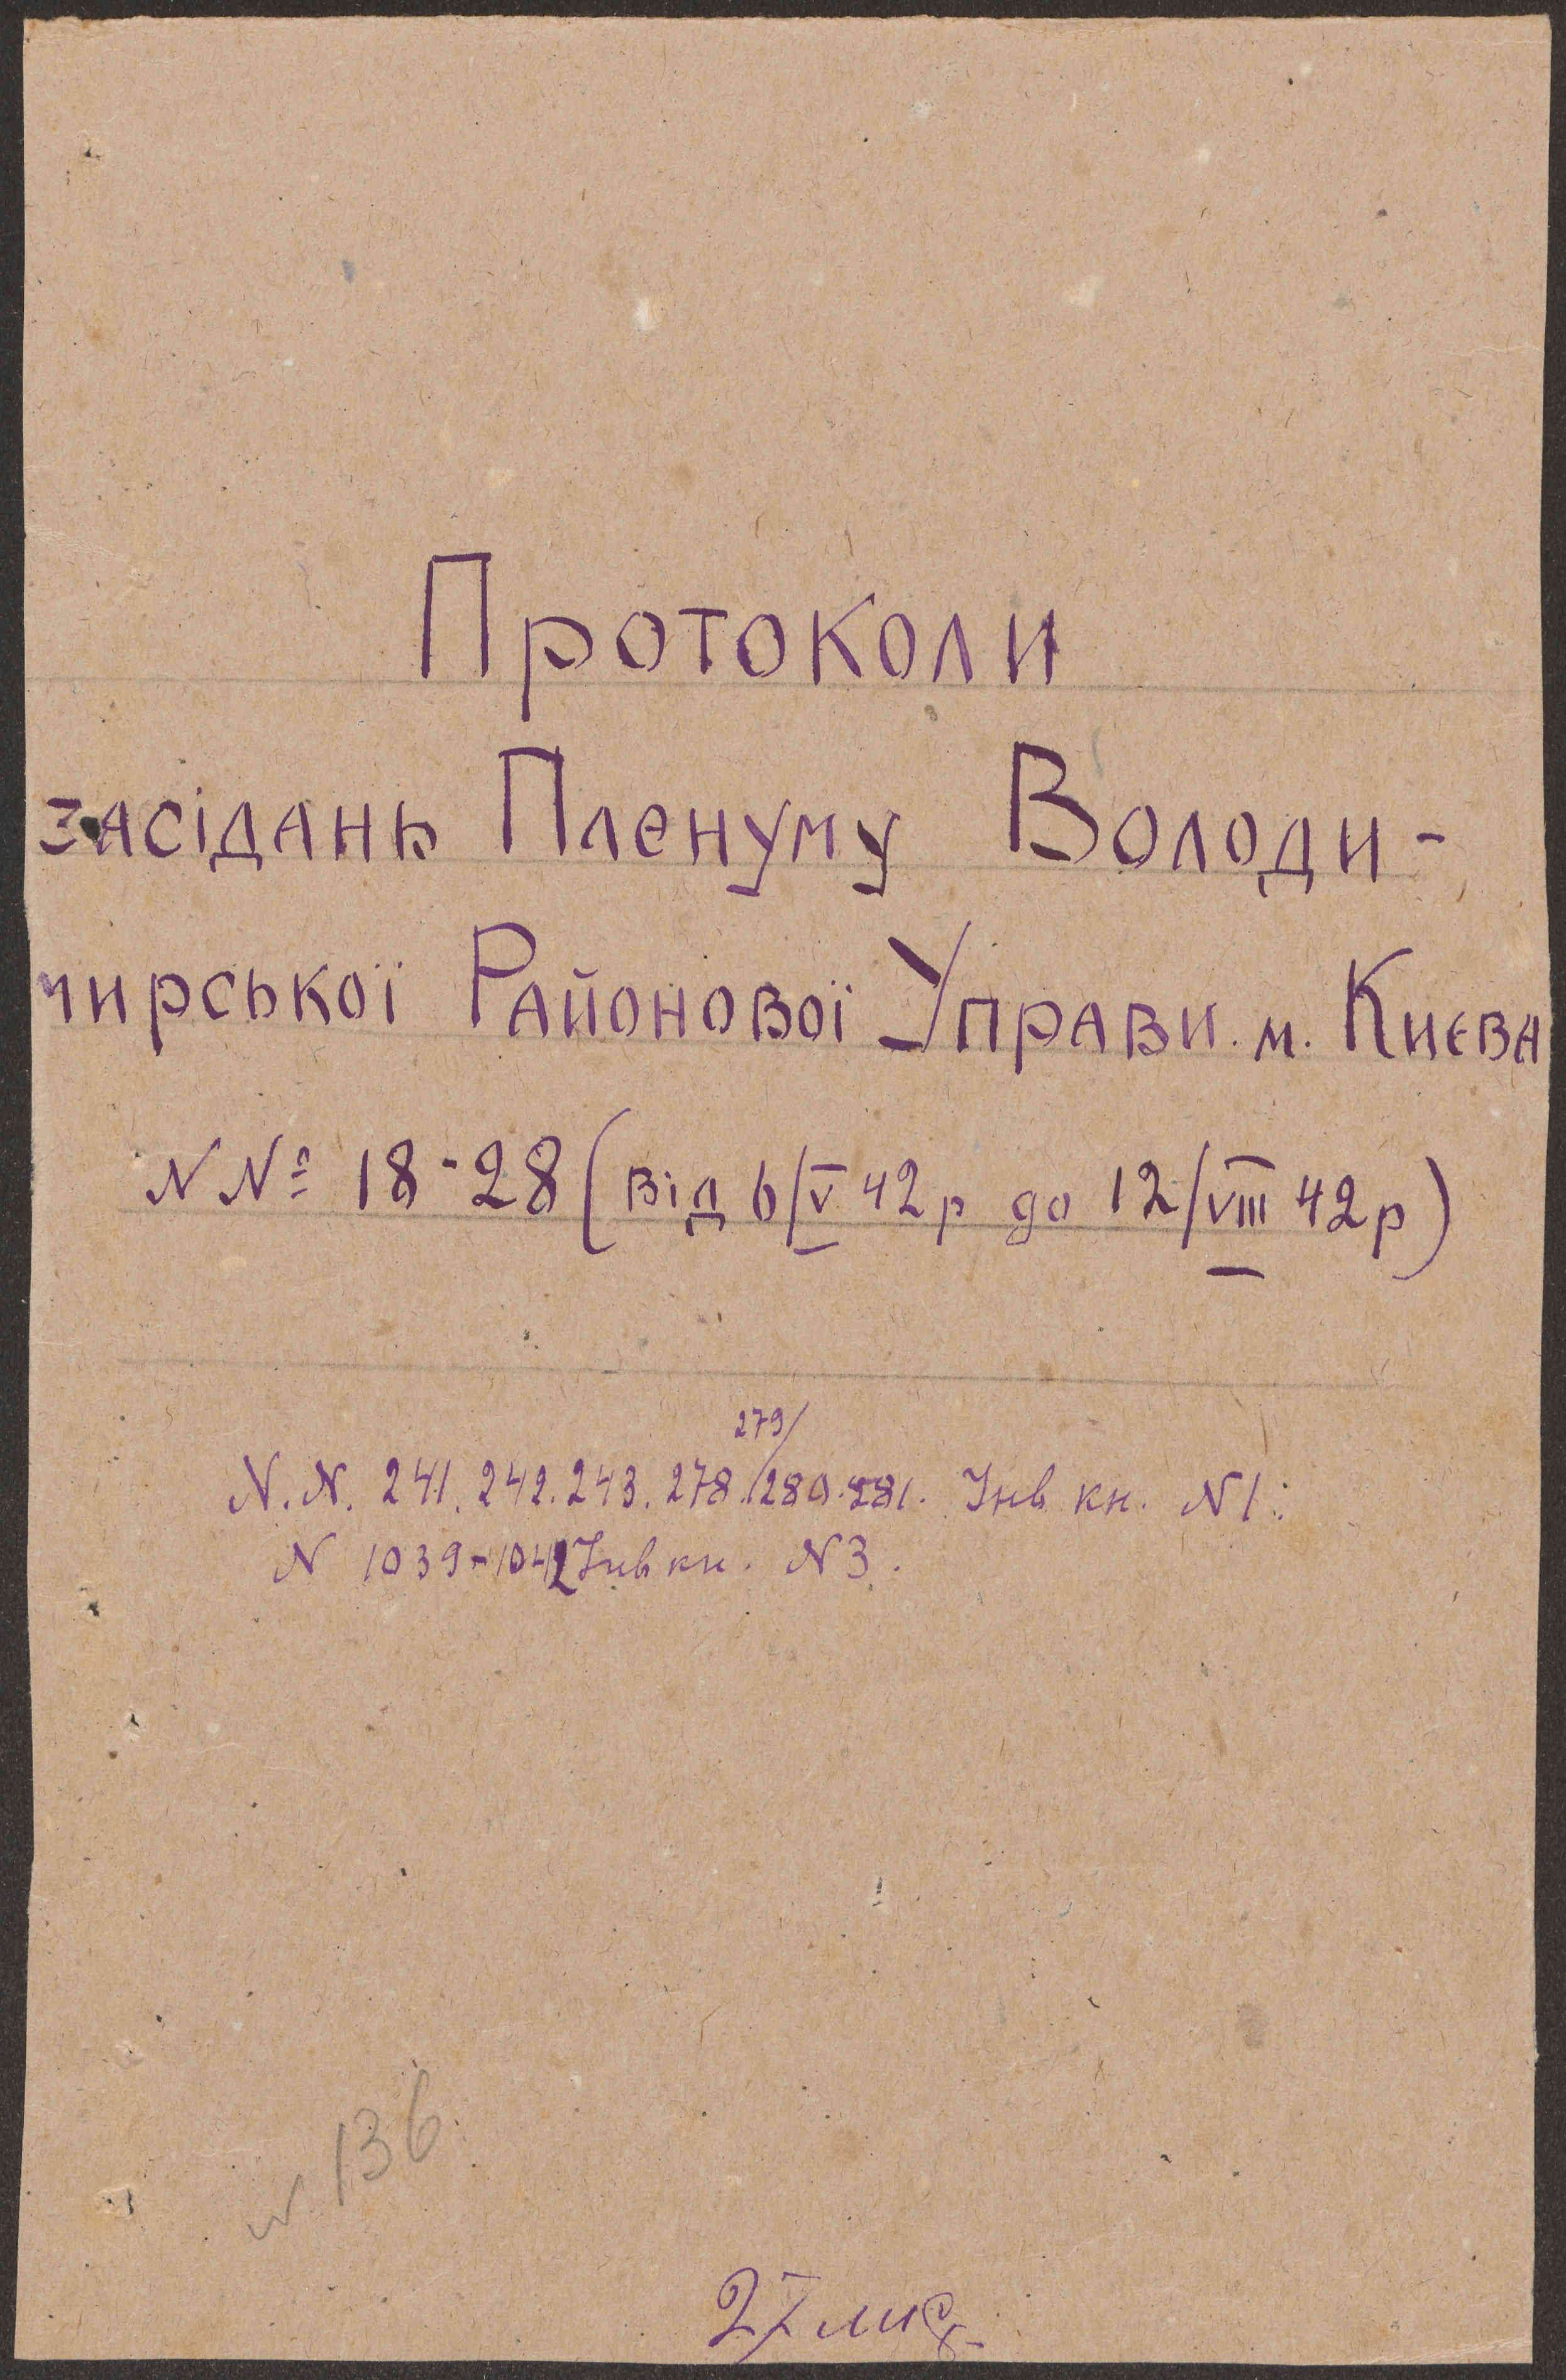 Протоколи
засідань Пленуму Володи-
мирської Районової Управи м. Києва
N№ 18-28 (від 6/V 42р до 12/VIII 42р)
279/
N.N. 241. 242. 243. 278. 280. 281. Інв кн. N1.
N 1039-1042 Інв кн. N3.
N 136
27